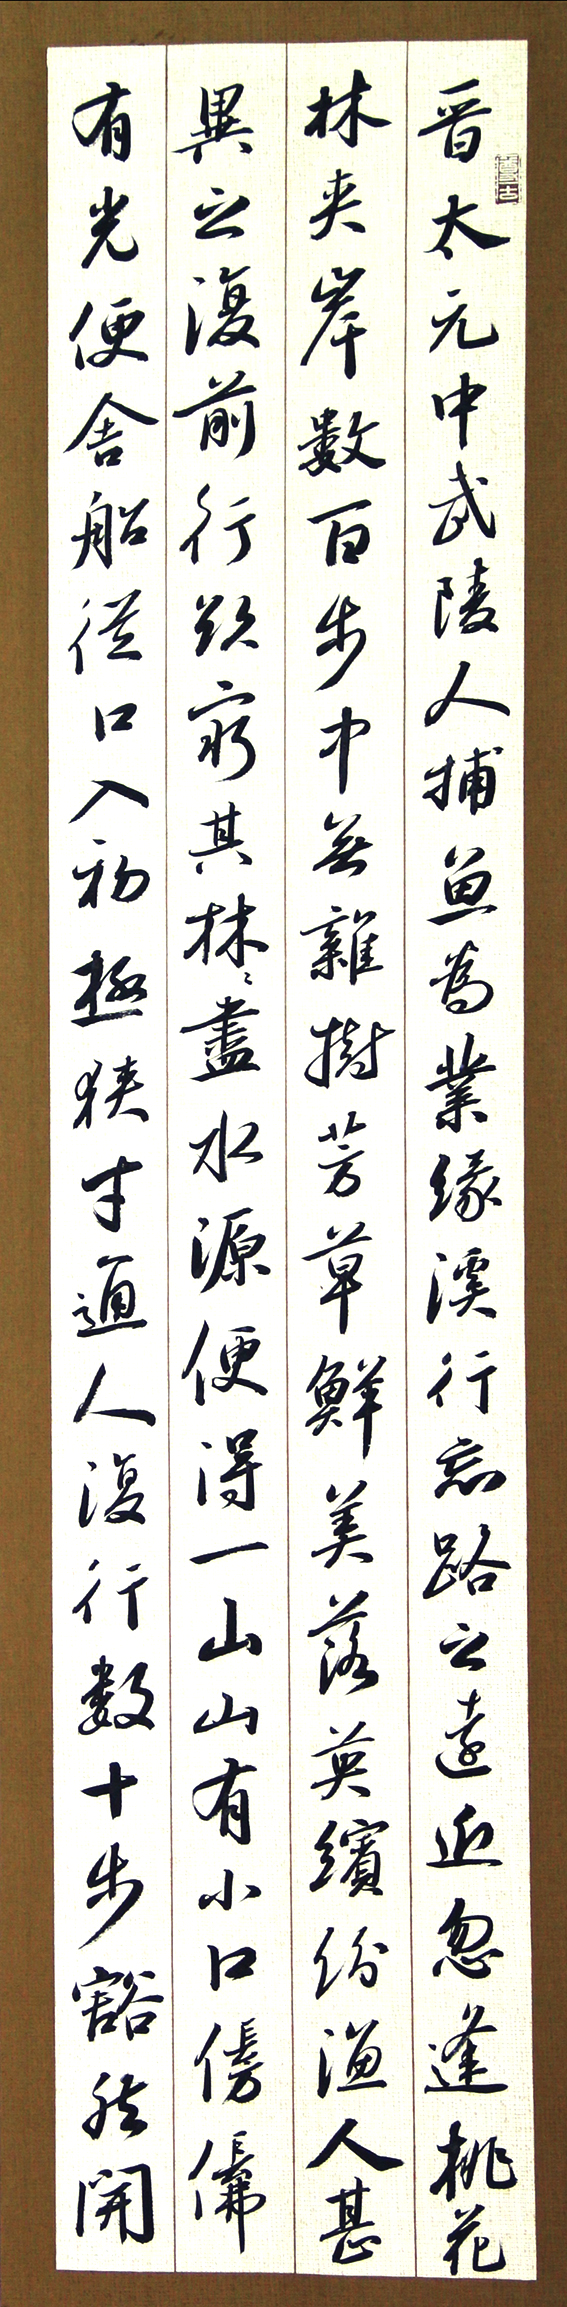 晋太元中武陵人捕魚為業緣溪行忘路之遠近忽逢桃花
林夾岸數百步中無雜樹芳草鮮美落英繽紛漁人甚
異之復前行欲窮其林〻盡水源便得一山山有小口髣髴
有光便舍船從口入初極狹才通人復行數十步豁然開